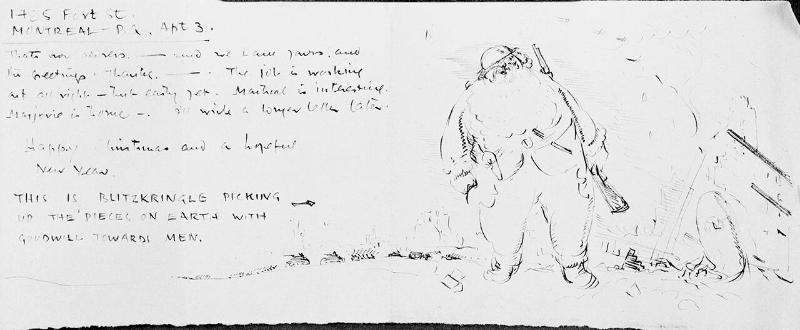 1485 Fort St.
MONTREAL – P.Q. Apt 3.
That's our news. — and we have yours, and
the greetings. Thanks. — . The job is working
out all right – but early yet. Montreal is interesting.
Marjorie is home –. I'll write a longer letter later.
Happy Christmas and a hopeful
New Year.
THIS IS BLITZKRINGLE PICKING
UP THE PIECES ON EARTH WITH
GOODWILL TOWARDS MEN.